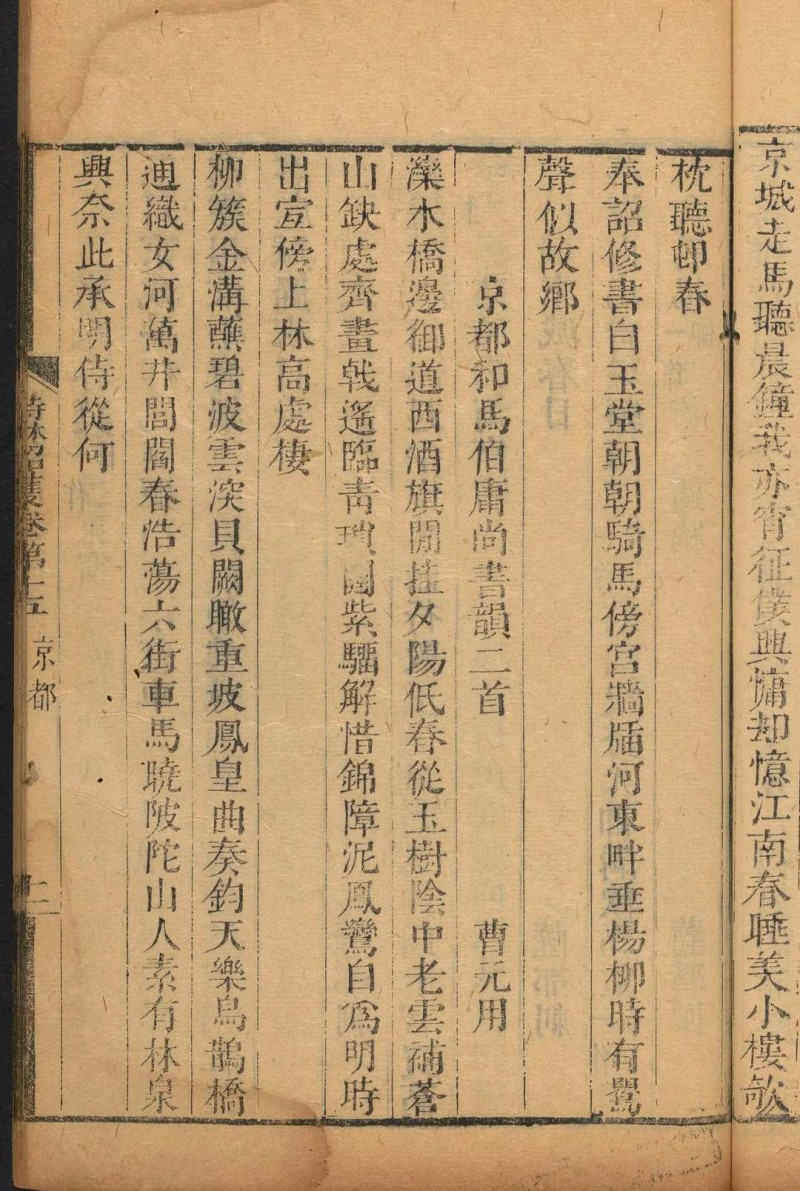 京城走馬聽晨鐘我亦宵征僕興慵却憶江南春睡美小樓欹
枕聽卸春
奉詔修書白玉堂朝朝騎馬傍宮牆牐河東畔垂楊柳時有鶯
聲似故鄉
京都和馬伯庸尚書韻二首 曹元用
灤水橋邊御道西酒旗閒挂夕陽低春從玉樹陰中老雲補蒼
山缺處齊畫戟遙臨青瑣闥紫騮解惜錦障泥鳳鸞自爲明時
出宜傍上林高處棲
柳簇金溝蘸碧波雲深貝闕瞰重坡鳳皇曲奏鈞天樂烏鵲橋
迴織女河萬井閭閻春浩蕩六街車馬曉陂陀山人素有林泉
興奈此承明侍從何
詩林韶濩卷第十五 京都 二